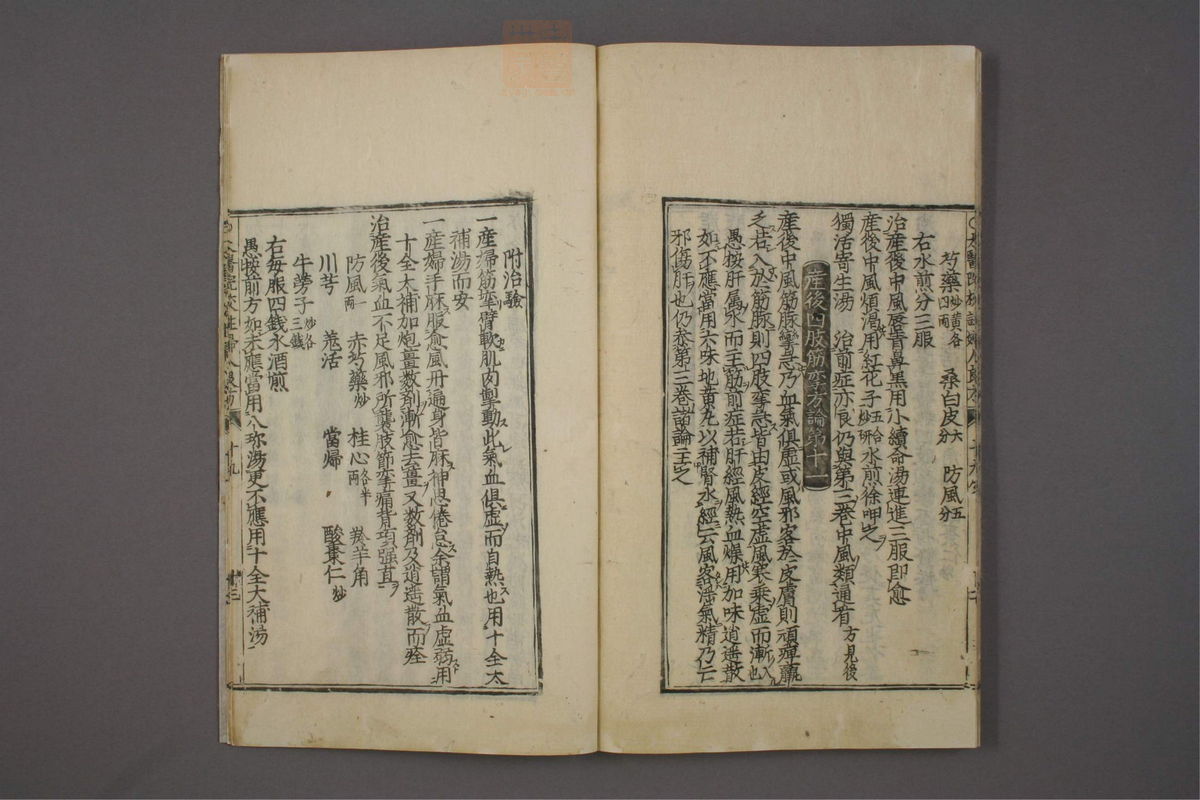 芍藥炒黄各四兩 桑白皮六分 防風五分
右水煎分三服
治産後中風唇青鼻黒用小續命湯連進三服即愈
産後中風煩渇用紅花子五合炒研水煎徐呷之
獨活寄生湯 治前症亦良仍與第三巻中風類通看方見後
産後四肢筋攣方論第十一
産後中風筋脉攣急乃血氣俱虚或風邪客於皮膚則頑痺羸
乏若入於筋脉則四肢攣急皆由皮經空虚風寒乗虚而漸入也
愚按肝属木而主筋前症若肝經風熱血燥用加味逍遥散
如不應當用六味地黄丸以補腎水經云風客淫氣精乃亡
邪傷肝也仍參第三巻諸論主之
附治驗
一産婦筋攣臂軟肌肉掣動此氣血俱虚而自熱也用十全大
補湯而安
一産婦手麻服愈風丹遍身皆麻神思倦怠余謂氣血虚弱用
十全大補加炮薑数剤漸愈去薑又数剤及逍遥散而痊
治産後氣血不足風邪所襲肢節攣痛背項强直
防風一兩 赤芍藥炒 桂心各半兩 羚羊角
川芎 羗活 當帰 酸棗仁炒
牛蒡子炒各三錢
右毎服四錢水酒煎
愚按前方如未應當用八珎湯更不應用十全大補湯